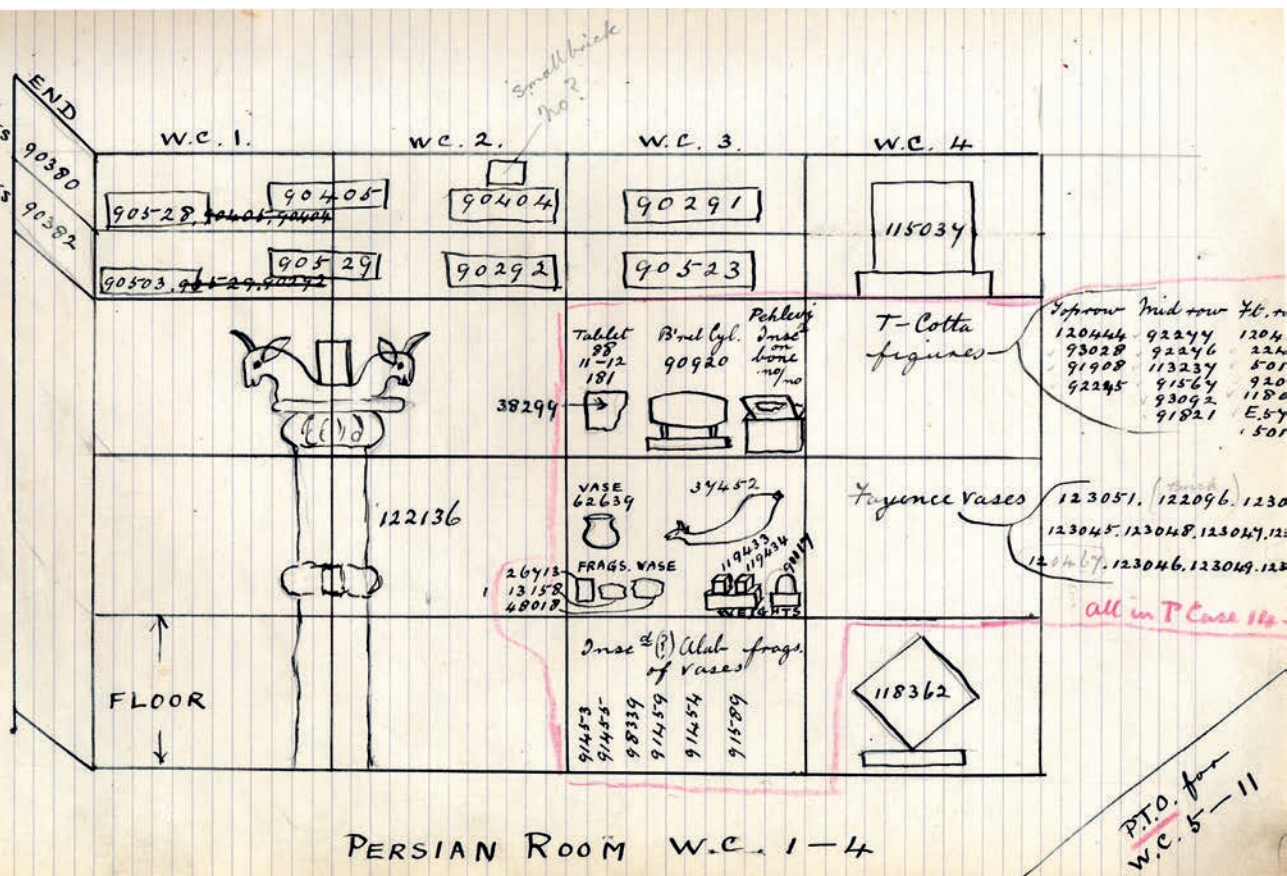 small brick
no?
END
W.C. 1.
W.C. 2.
W.C. 3.
W.C. 4
90380
90382
90528, 90405, 90404
90405
90404
90291
115037
90503, 90529, 90292
90529
90292
90523
Tablet
88
11-12
181
38299
B'rel Cyl.
90920
Pehlevi
Inscd
on
bone
no/no
T-Cotta
figures
Top row
120444
93028
91908
92245
Mid row
92277
92276
113237
91567
93092
91821
Ft. r
1204
224
501
920
1180
E.57
501
122136
VASE
62639
37452
FRAGS. VASE
26713
13158
48018
119433
119434
91117
WEIGHTS
Fayence vases
123051. (Brick 122096.) 1230
123045. 123048. 123047. 123
120467. 123046. 123049. 123
all in T Case 14
FLOOR
Inscd (?) Alab frags.
of vases
91453
91455
98339
91459
91454
91589
118362
PERSIAN ROOM W.C. 1-4
P.T.O. for
W.C. 5-11